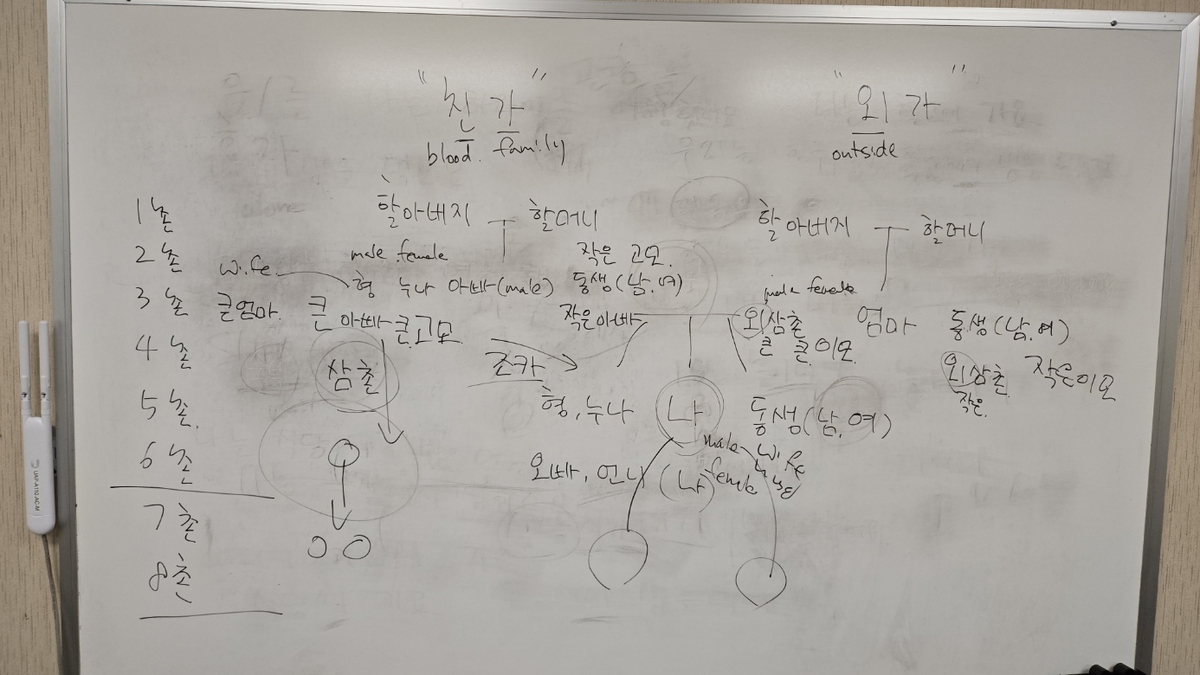 "친가" "외가"
blood. family outside
1촌 할아버지 할머니 할아버지 할머니
2촌 wife male female 작은 고모
3촌 형 누나 아빠(male) 동생(남.여) male female
큰엄마. 큰아빠 큰고모 작은아빠 외삼촌 엄마 동생(남,여)
큰 큰이모
4촌 삼촌 조카 외삼촌 작은이모
작은
5촌 형,누나 나 동생(남,여)
6촌 오빠, 언니 (나) male female wife
7촌
8촌